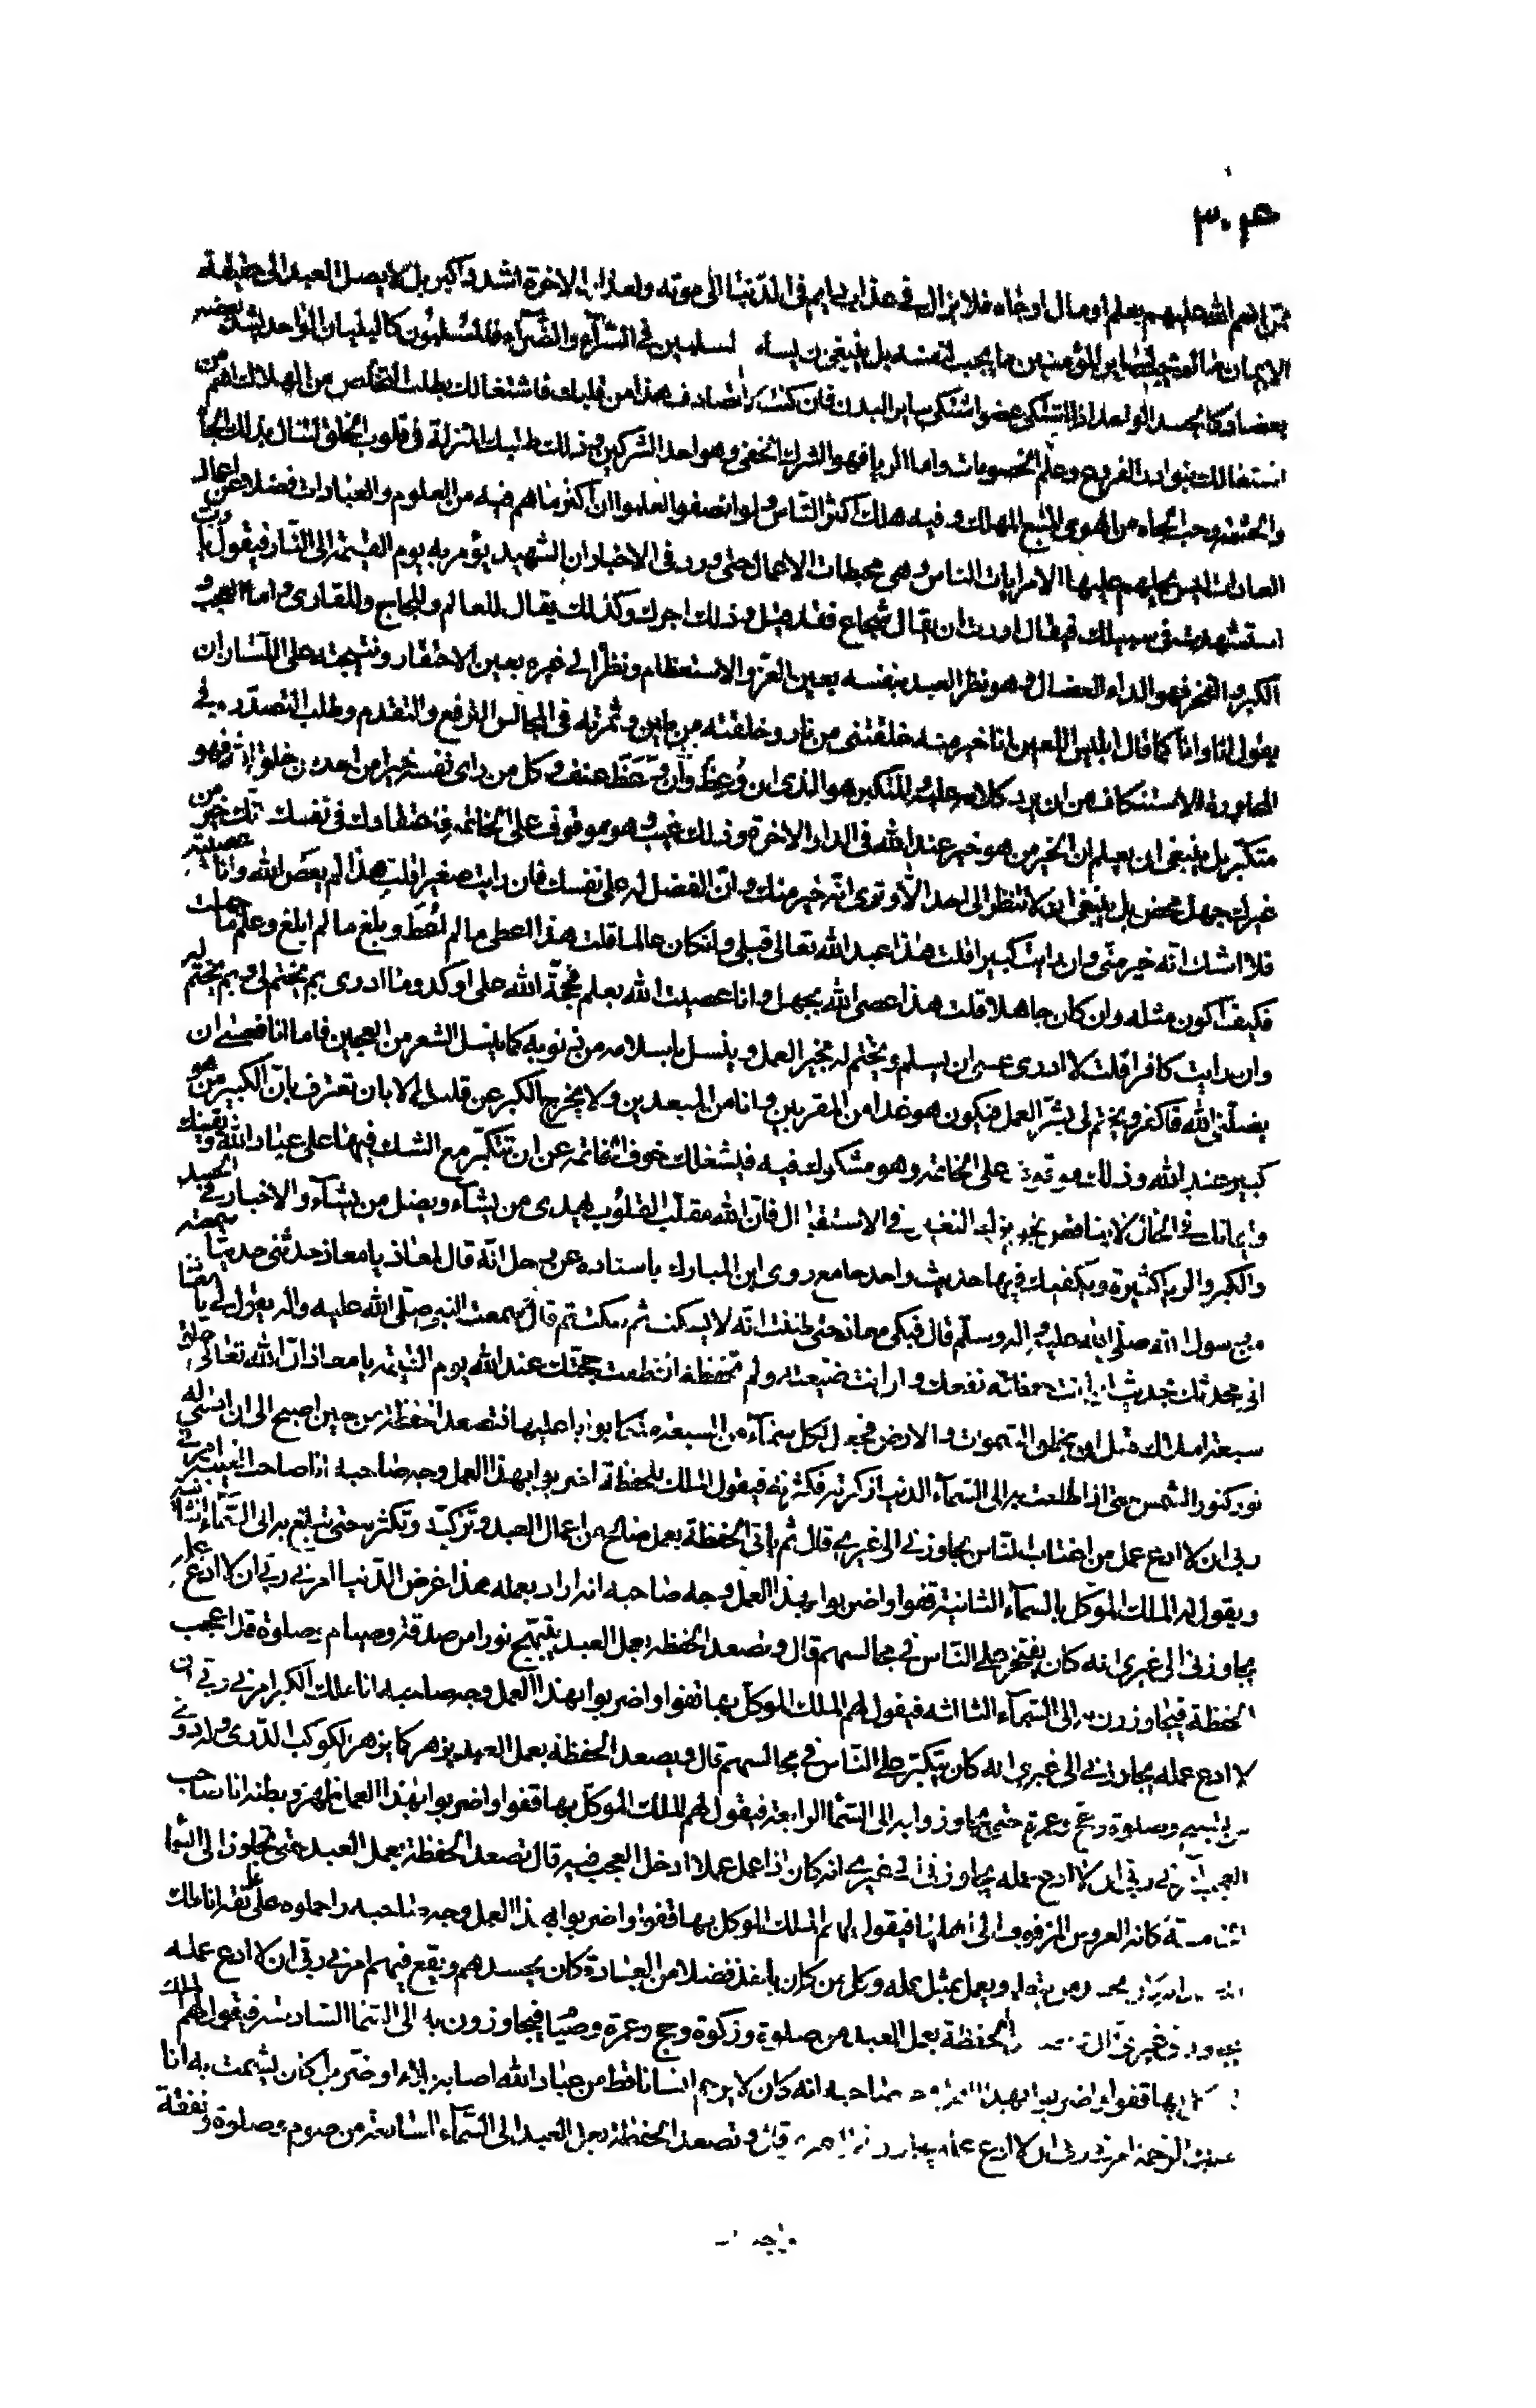 ص ٣٠
ممن انعم الله عليهم بعلم او مال او جاه فلا يزال في عذاب دايم في الدنيا الى موته ولعذاب الاخرة اشد و اكبر بل لا يصل العبد الى حقيقة
الايمان ما لم يحب لساير المؤمنين ما يحب لنفسه بل ينبغى ان يساهم المسلمين في السرآء والضرآء فالمسلمون كالبنيان الواحد يشد بعضه
بعضا وكالجسد الواحد اذا اشتكى عضو اشتكى ساير البدن فان كنت لا تصادف هذا من قلبك فاشتغالك بطلب التخلص من الهلاك اهم من
اشتغالك بنوادر الفروع وعلم الخصومات واما الريا فهو الشرك الخفى وهو احد الشركين وذلك طلبك المنزلة في قلوب الخلق لتنال بذلك الجاه
والحشمة وحب الجاه من الهوى المتبع المهلك وفيه هلك اكثر الناس ولو انصفوا لعلموا ان اكثر ما هم فيه من العلوم والعبادات فضلا عن اعمال
العادات ليس يحملهم عليها الا مرايات الناس وهى محبطات الاعمال حتى ورد في الاخبار ان الشهيد يؤمر به يوم القيمة الى النار فيقول يا رب
استشهدت في سبيلك فيقال اردت ان يقال شجاع فقد قيل وذلك اجرك وكذلك يقال للعالم والحاج والقارى واما العجب و
الكبر والفخر فهو الداء العضال وهو نظر العبد بنفسه بعين العز والاستعظام ونظرا لى غيره بعين الاحتقار ونتيجته على اللسان ان
يقول انا وانا كما قال ابليس اللعين انا خير منه خلقتنى من نار وخلقته من طين وثمرته في المجالس الترفع والتقدم وطلب التصدر و في
المحاورة الاستنكاف من ان يرد كلامه عليه والمتكبر هو الذى ان وعظ انف و وعظ عنف وكل من راى نفسه خيرا من احد من خلق الله فهو
متكبر بل ينبغى ان يعلم ان الخير من هو خير عند الله في الدار الاخرة وذلك غيب وهو موقوف على الخاتمه فاعتقادك في نفسك انك خير من
غيرك جهل محض بل ينبغى ان لا تنظر الى احد الا و ترى انه خير منك وان الفضل له على نفسك فان رايت صغيرا قلت هذا لم يعص الله وانا عصيته
فلا اشك انه خير منى وان رايت كبيرا قلت هذا عبد الله تعالى قبلى وان كان عالما قلت هذا اعطى ما لم اعط وبلغ ما لم ابلغ وعلم ما جهلت
فكيف اكون مثله وان كان جاهلا قلت هذا عصى الله بجهل وانا عصيت الله بعلم فحجة الله على اوكد وما ادرى بم يختم لى وبم يختم له
وان رايت كافرا قلت لا ادرى عسى ان يسلم ويختم له بخير العمل وينسل باسلامه من ذنوبه كما ينسل الشعر من العجين فاما انا فعسى ان
يضلنى الله فاكفر ويختم لى بشر العمل فيكون هو غدا من المقربين وانا من المبعدين ولا يخرج الكبر عن قلبك الا بان تعترف بان الكبير من هو
كبير عند الله وذلك موقوف على الخاتمه وهو مشكوك فيه فيشغلك خوف الخاتمه عن ان تتكبر مع الشك فيها على عباد الله و يقينك
وايمانك في الحال لا يناقض تجويزك التغيير في الاستقبال فان الله مقلب القلوب يهدى من يشآء ويضل من يشآء والاخبار في الحسد
والكبر والريا كثيرة ويكفيك فيها حديث واحد جامع روى ابن المبارك باسناده عن رجل انه قال لمعاذ يا معاذ حدثنى حديثا سمعته
من رسول الله صلى الله عليه وآله وسلم قال فبكى معاذ حتى ظننت انه لا يسكت ثم سكت ثم قال سمعت النبى صلى الله عليه واله يقول لى يا معاذ
انى محدثك بحديث ان انت حفظته نفعك وان انت ضيعته ولم تحفظه انقطعت حجتك عند الله يوم القيمة يا معاذ ان الله تعالى خلق
سبعة املاك قبل ان يخلق السموات والارض فجعل لكل سمآء من السبعة ملكا بوابا عليها فتصعد الحفظة من حين اصبح الى ان امسى له
نور كنور الشمس حتى اذا طلعت به الى السمآء الدنيا زكته فكثرته فيقول الملك للحفظة اضربوا بهذا العمل وجه صاحبه انا صاحب الغيبة امرنى
ربى ان لا ادع عمل من اغتاب الناس يجاوزنى الى غيرى قال ثم ياتى الحفظة بعمل صالح من اعمال العبد وتزكيه وتكثره حتى تبلغ به الى السمآء الثانية
ويقول لهم الملك الموكل بالسمآء الثانية قفوا واضربوا بهذا العمل وجه صاحبه انه اراد بعمله هذا غرض الدنيا امرنى ربى ان لا ادع عمله
يجاوزنى الى غيرى انه كان يفتخر على الناس في مجالسهم قال وتصعد الحفظه بعمل العبد يتبهج نورا من صدقة وصيام وصلوة قد اعجب
الحفظة فيجاوزون به الى السمآء الثالثه فيقول لهم الملك الموكل بها قفوا واضربوا بهذا العمل وجه صاحبه انا ملك الكبر امرنى ربى ان
لا ادع عمله يجاوزنى الى غيرى انه كان يتكبر على الناس في مجالسهم قال ويصعد الحفظة بعمل العبد يزهر كما يزهر الكوكب الدرى وله دوى
من تسبيح وصلوة وحج وعمرة حتى يجاوزوا به الى السما الرابعة فيقول لهم الملك الموكل بها قفوا واضربوا بهذا العمل ظهره وبطنه انا صاحب
العجب امرنى ربى ان لا ادع عمله يجاوزنى الى غيرى انه كان اذا عمل عملا ادخل العجب فيه قال تصعد الحفظة بعمل العبد حتى تجاوز الى السما
الخامسة كانه العروس المزفوفة الى اهلها فيقول لهم الملك الموكل بها قفوا واضربوا بهذا العمل وجه صاحبه واحملوه على عاتقه انا ملك
الحسد انه كان يحسد من يتعلم ويعمل بمثل عمله وكل من كان ياخذ فضلا من العبادة كان يحسدهم ويقع فيهم امرنى ربى ان لا ادع عمله
يجاوزنى غيرى قال تصعد الحفظة بعمل العبد من صلوة وزكوة وحج وعمرة وصيام فيجاوزون به الى السما السادسة فيقول لهم الملك
الموكل بها قفوا واضربوا بهذا العمل وجه صاحبه انه كان لا يرحم انسانا قط من عباد الله اصابه بلاء او ضر بل كان يشمت به انا
ملك الرحمة امرنى ربى ان لا ادع عمله يجاوزنى الى غيرى قال وتصعد الحفظة بعمل العبد الى السمآء السابعة من صوم وصلوة ونفقة